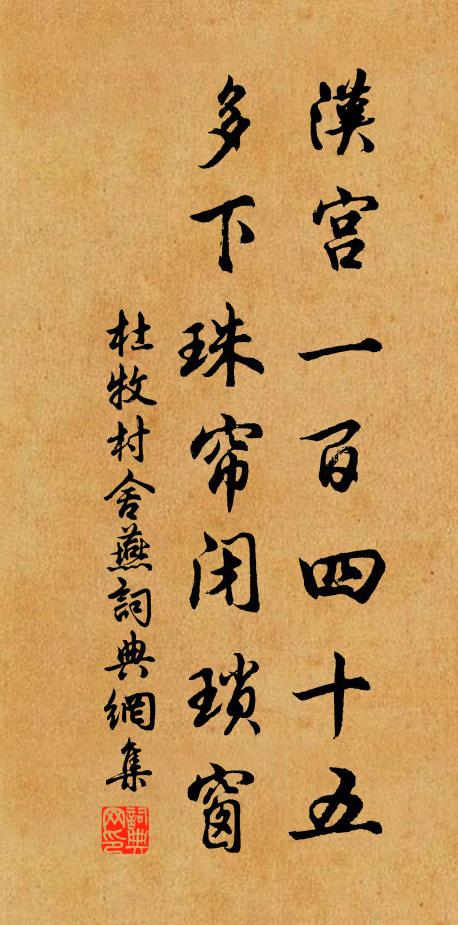 漢宮一百四十五
多下珠帘闭瑣窗
杜牧村舍燕詞典網集
詞典网印